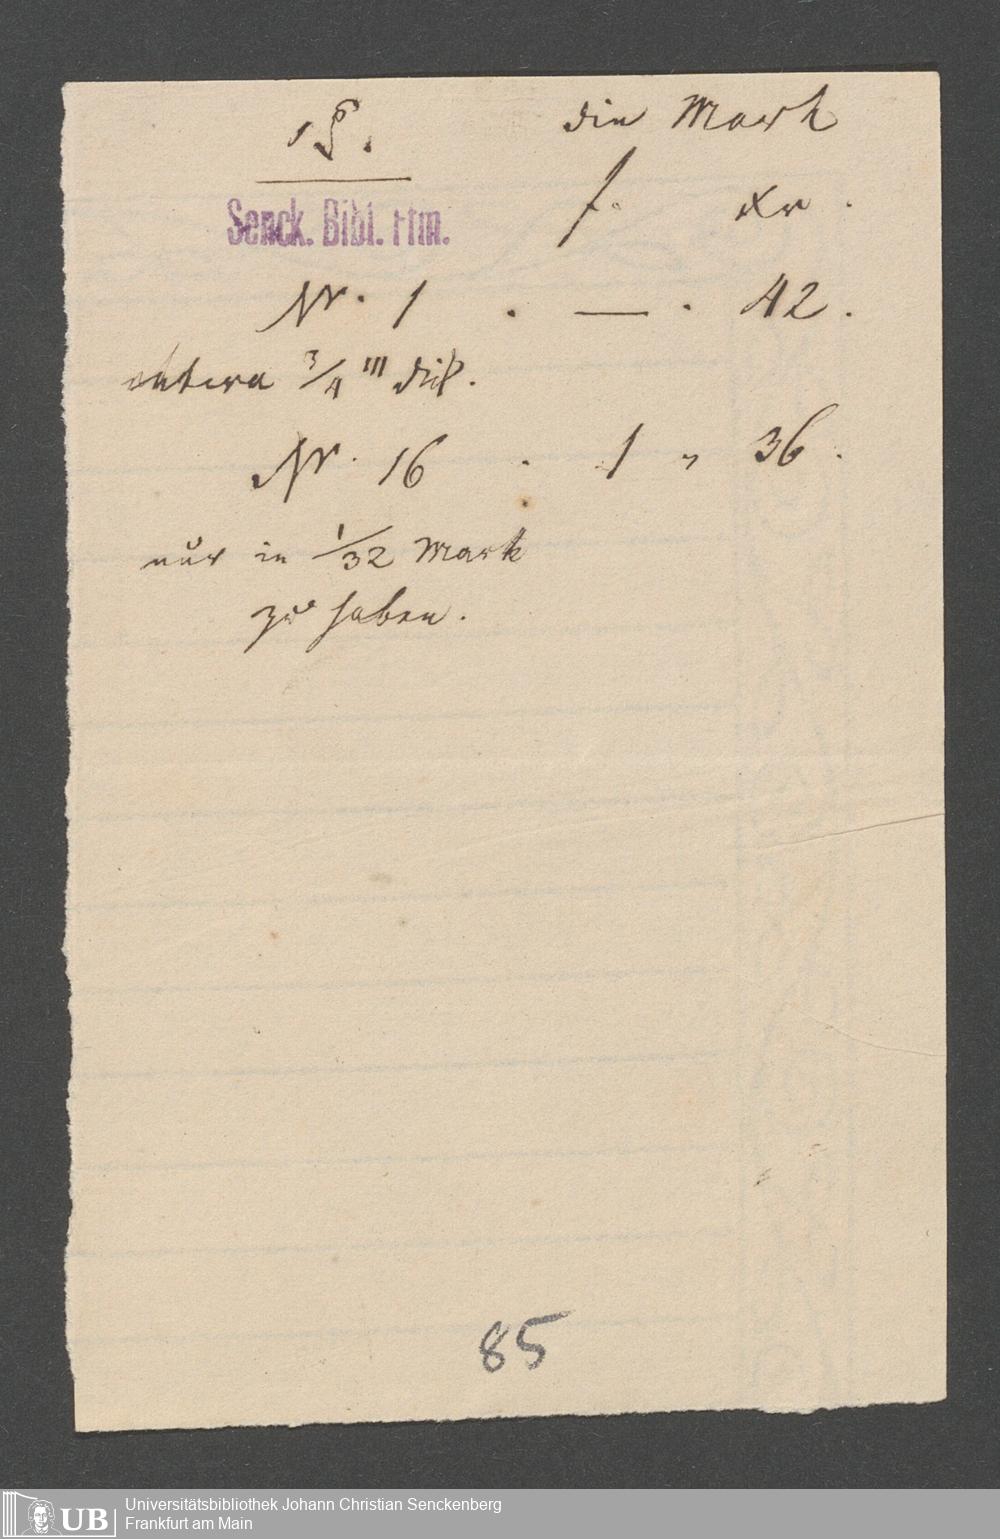 die Mark
f. Xr.
Senck. Bibl. Ffm.
Nr. 1 . — . 42.
3/4 ''' dik.
Nr. 16 . 1 „ 36.
nur in 1/32 Mark
zu haben.
85
UB
Universitätsbibliothek Johann Christian Senckenberg
Frankfurt am Main